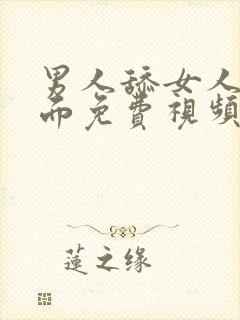 男人舔女人
而免費視頻
蓮之缘